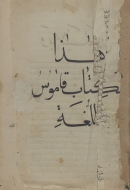 هذا
كتاب قاموس
اللغة